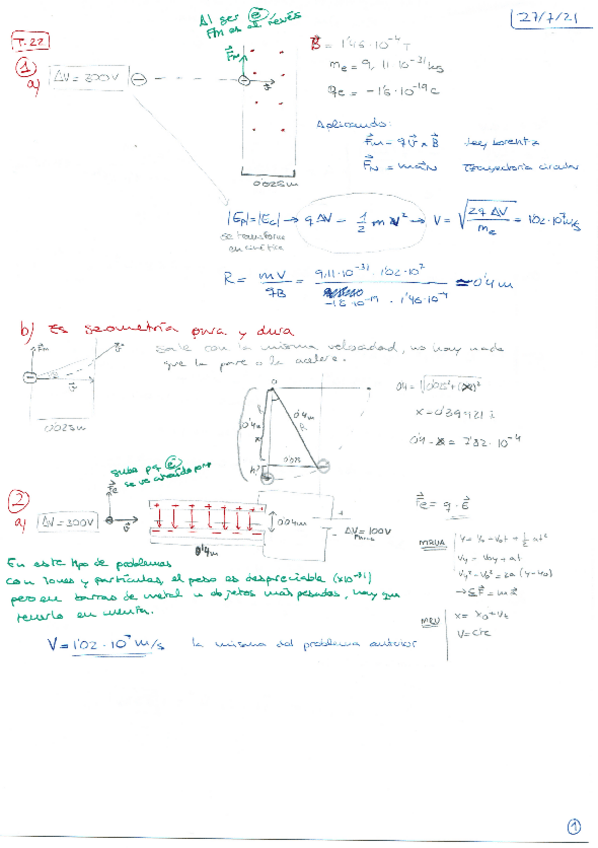 27/7/21
Al ser e⊖
Fm es al revés
T.22
① a) ΔV = 300V
F⃗m
v⃗
0'025m
B⃗ = 1'46·10⁻⁴ T
me = 9,11·10⁻³¹ kg
qe = -1'6·10⁻¹⁹ C
Aplicando:
F⃗m = q v⃗ x B⃗ Ley Lorentz
F⃗N = m a⃗N Trayectoria circular
|Ep| = |Ec| → q ΔV = 1/2 m v² → V = √(2q ΔV / me) = 1'02·10⁷ m/s
se transforma
en cinética
R = mV / qB = 9,11·10⁻³¹ · 1'02·10⁷ / -1'6·10⁻¹⁹ · 1'46·10⁻⁴ ≃ 0'4 m
b) Es geometría pura y dura
sale con la misma velocidad, no hay nada
que la pare o la acelere.
F⃗m
v⃗
v⃗
0'025m
0'4m
0'4m
R
x
h
0'025
0'4 = √(0'025² + (x)²)
x = 0'399218
0'4 - x = 7'82·10⁻⁴
sube pq e⊖
② a) ΔV = 300V
F⃗e
v⃗
0'04m
0'4m
ΔV = 100V
F⃗e = q · E⃗
MRUA
y = y₀ + v₀t + 1/2 at²
Vy = Voy + at
Vy² - V₀² = 2a (y - y₀)
→ ΣF⃗ = m a⃗
MRU
x = x₀ + vt
V = cte
En este tipo de problemas
con iones y partículas, el peso es despreciable (x10⁻³¹)
pero en barras de metal u objetos más pesados, hay que
tenerlo en cuenta.
V = 1'02·10⁷ m/s la misma del problema anterior
①